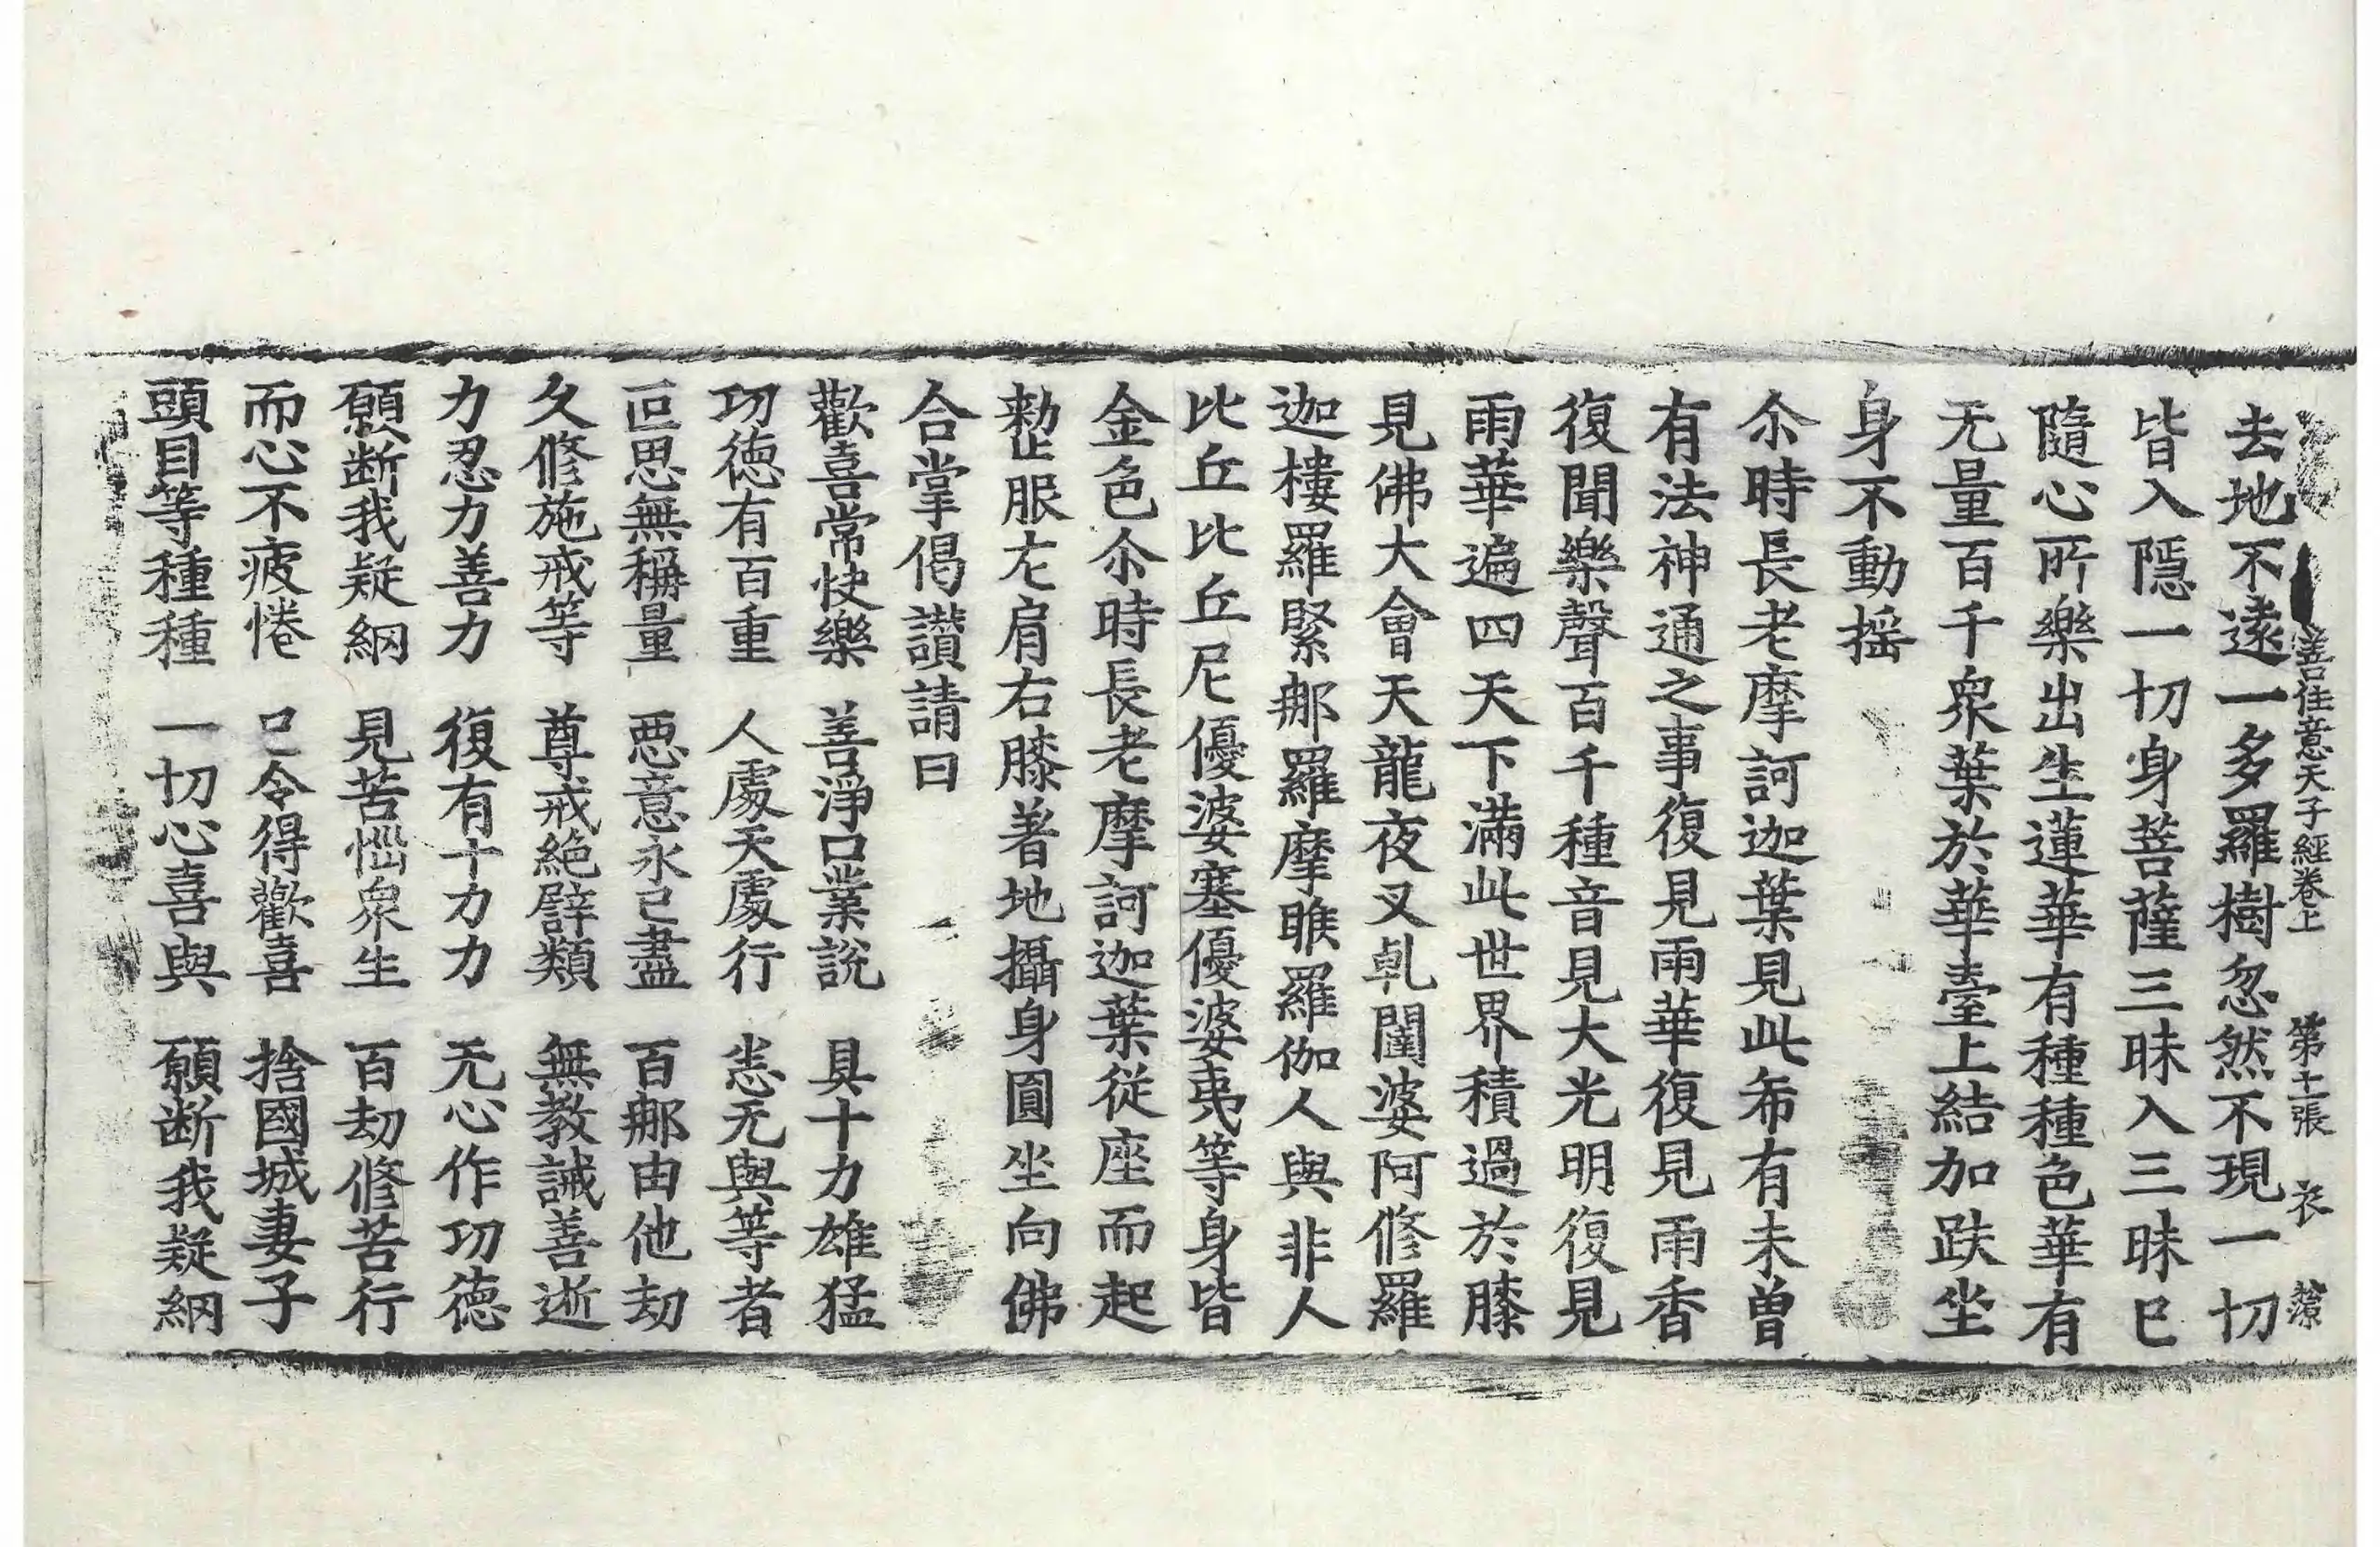 善住意天子經卷上 第十二張 衣
去地不遠一多羅樹忽然不現一切
皆入隱一切身菩薩三昧入三昧已
隨心所樂出生蓮華有種種色華有
无量百千衆葉於華臺上結加趺坐
身不動揺
尒時長老摩訶迦葉見此希有未曾
有法神通之事復見雨華復見雨香
復聞樂聲百千種音見大光明復見
雨華遍四天下滿此世界積過於膝
見佛大會天龍夜叉乹闥婆阿修羅
迦樓羅緊那羅摩睺羅伽人與非人
比丘比丘尼優婆塞優婆夷等身皆
金色尒時長老摩訶迦葉從座而起
整服左肩右膝著地攝身圓坐向佛
合掌偈讚請曰
歡喜常快樂 善淨口業說 具十力雄猛
功德有百重 人處天處行 悉无與等者
叵思無稱量 惡意永已盡 百那由他劫
久修施戒等 尊戒絶辟類 無教誡善逝
力忍力善力 復有十力力 无心作功德
願断我疑網 見苦惱衆生 百劫修苦行
而心不疲惓 已令得歡喜 捨國城妻子
頭目等種種 一切心喜與 願断我疑網